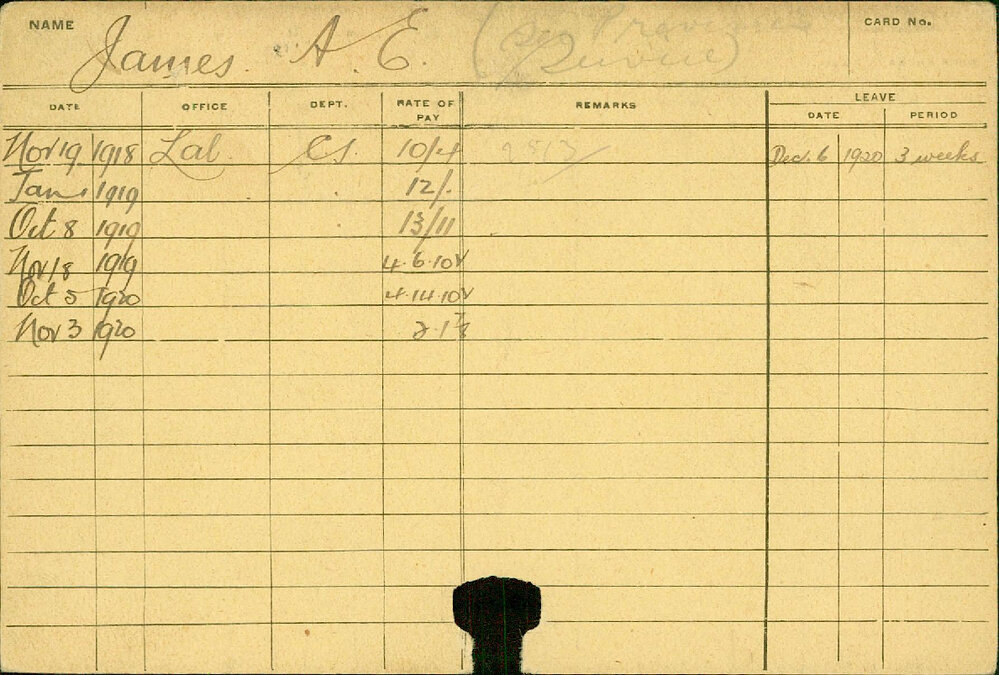 NAME James A. E. (See Previous Service) CARD No.
LEAVE
DATE OFFICE DEPT. RATE OF PAY REMARKS DATE PERIOD
Nov 19 1918 Lab. Cs. 10/4 Dec. 6 1920 3 weeks
Jan 1 1919 12/-
Oct 8 1919 13/11
Nov 18 1919 4.6.10
Oct 5 1920 4.14.10
Nov 3 1920 2.1